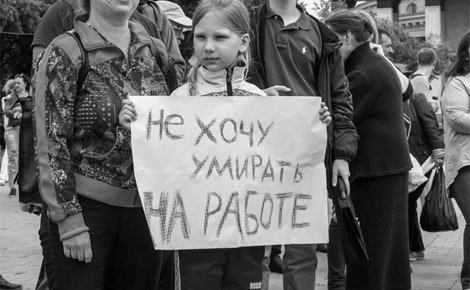 не хочу
умирать
на работе
BOSS